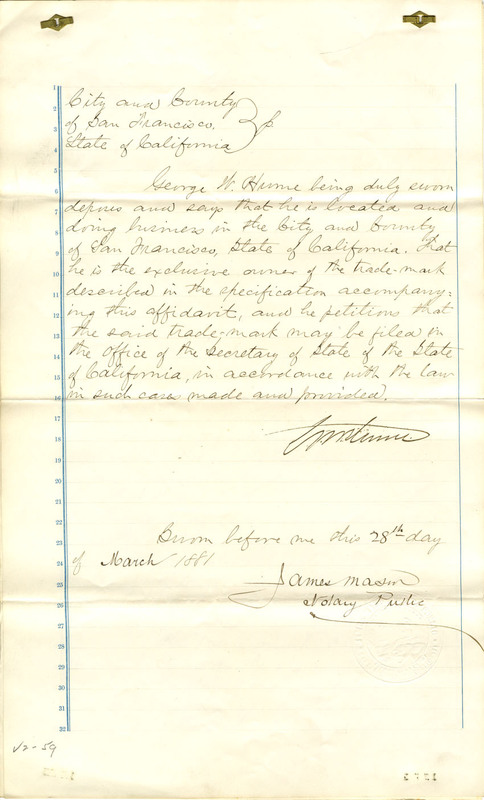 1
2
3
4
5
6
7
8
9
10
11
12
13
14
15
16
17
18
19
20
21
22
23
24
25
26
27
28
29
30
31
32
City and County
of San Francisco,
State of California
George W. Hume being duly sworn
deposes and says that he is located and
doing business in the City and County
of San Francisco, State of California. That
he is the exclusive owner of the trade-mark
described in the specification accompany-
ing this affidavit, and he petitions that
the said trade-mark may be filed in
the office of the Secretary of State of the State
of California, in accordance with the law
in such cases made and provided.
Sworn before me this 28th day
of March 1881
James Mason
Notary Public
V2-59